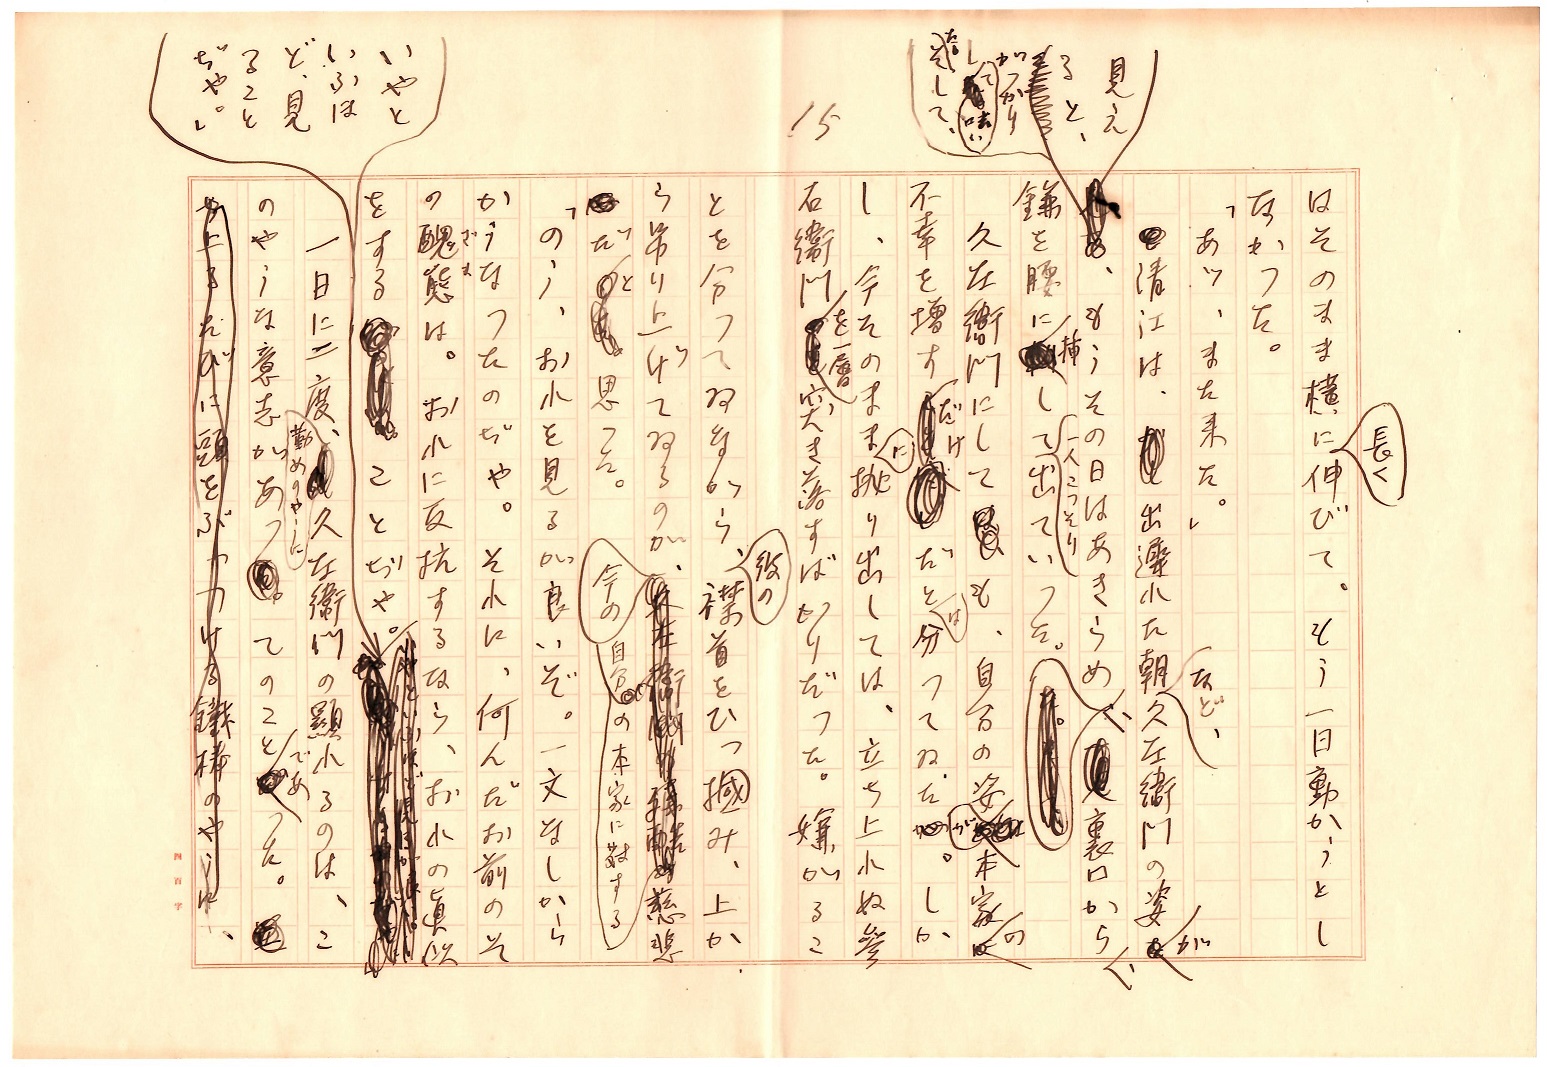 15
長く
はそのまま横に伸びて。もう一日動かうとし
なかつた。
「あツ、また来た。」
など、
清江は、出遅れた朝久左衛門の姿
が
見え
ると、
がつかり
して
味い
そして、
もうその日はあきらめ
裏口から
鎌を腰に
挿
して
一人こつそり
出ていつた。
久左衛門にしても、自分の姿
が
本家
の
不幸を増す
だけ
だと
は
分つてゐた。しか
し、今そのまま
に
抛り出しては、立ち上れぬ參
右衛門
を一層
突き落すばかりだつた。嫌がるこ
とを分つてゐながら、
彼の
襟首をひつ摑み、上か
ら吊り上げてゐるのが、
今の
自分の本家に対する
慈悲
だ
と
思つた。
「のう、おれを見るが良いぞ。一文なしから
かうなつたのぢや。それに、何んだお前のそ
の醜態
ざま
は。おれに反抗するなら、おれの眞似
をすることぢや。
いやと
いふほ
ど、見
ること
ぢや。」
一日に二度、
勤めのやうに
久左衛門の顯れるのは、こ
のやうな意志があつてのこと
であ
つた。
や上るたびに頭をぶつつける鐵棒のやうに、
四百字